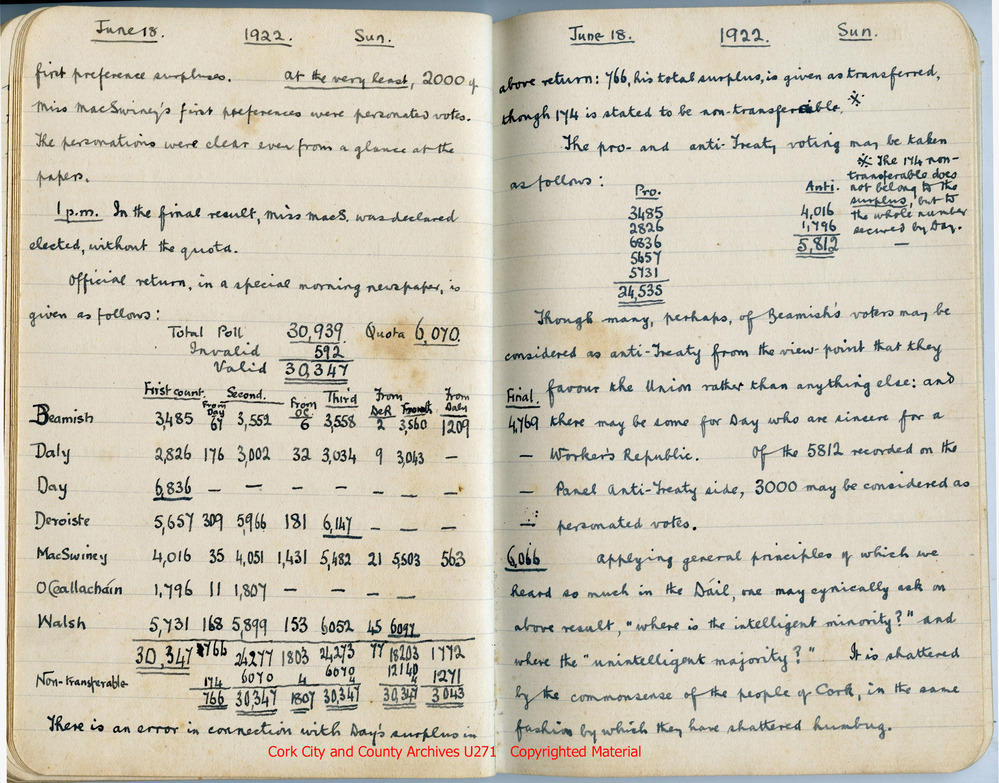 June 18. 1922. Sun.
first preference surpluses. At the very least, 2000 of
Miss MacSwiney's first preferences were personated votes.
The personations were clear even from a glance at the
papers.
1 p.m. In the final result, Miss MacS. was declared
elected, without the quota.
Official return, in a special morning newspaper, is
given as follows:
Total Poll 30,939 Quota 6,070.
Invalid 592
Valid 30,347
First count. From Day Second. From OC. Third From DeR Fourth From Daly
Beamish 3,485 67 3,552 6 3,558 2 3,560 1209
Daly 2,826 176 3,002 32 3,034 9 3,043 —
Day 6,836 — — — — — — —
Deroiste 5,657 309 5,966 181 6,147 — — —
MacSwiney 4,016 35 4,051 1,431 5,482 21 5,503 563
OCeallacháin 1,796 11 1,807 — — — —
Walsh 5,731 168 5,899 153 6052 45 6097
30,347 766 24277 1803 24,273 77 18203 1772
Non-transferable 174 6070 4 6070 4 12140 4 1271
766 30,347 1807 30,347 30,347 3043
There is an error in connection with Day's surplus in
June 18. 1922. Sun.
above return: 766, his total surplus, is given as transferred,
though 174 is stated to be non-transferable. ※
The pro- and anti-Treaty voting may be taken
as follows:
※ The 174 non-
transferable does
not belong to the
surplus, but to
the whole number
secured by Day.
—
Pro. Anti.
3485 4,016
2826 1,796
6836 5,812
5657
5731
24,535
Though many, perhaps, of Beamish's voters may be
considered as anti-Treaty from the view-point that they
Final. favour the Union rather than anything else: and
4,769 there may be some for Day who are sincere for a
— Worker's Republic. Of the 5812 recorded on the
— Panel Anti-Treaty side, 3000 may be considered as
— personated votes.
6,066 Applying general principles of which we
heard so much in the Dáil, one may cynically ask on
above result, "where is the intelligent minority?" and
where the "unintelligent majority?" It is shattered
by the commonsense of the people of Cork, in the same
fashion by which they have shattered humbug.
Cork City and County Archives U271 Copyrighted Material